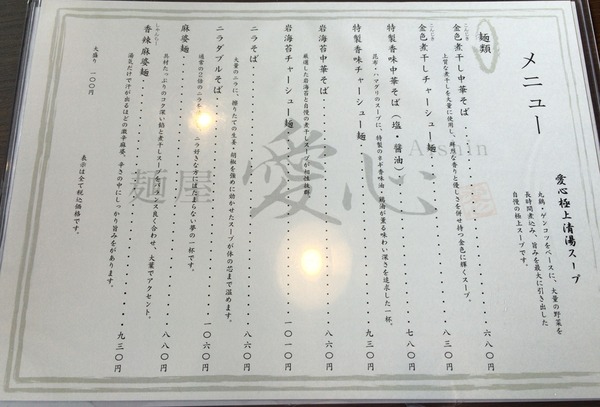 メニュー
愛心極上清湯スープ
丸鶏・ゲンコツをベースに、大量の野菜を
長時間煮込み、旨みを最大に引き出した
自慢の極上スープです。
麺類
金色煮干し中華そば・・・・・・・・六八〇円
こんじき
上質な煮干しを大量に使用し、鮮烈な香りと優しさを併せ持つ金色に輝くスープ。
金色煮干しチャーシュー麺・・・・・・・・八三〇円
こんじき
特製香味中華そば（塩、醤油）・・・・・・・・七八〇円
昆布・ハマグリのスープに、特製のネギ香味油・鶏油が薫る味わい深さを追求した一杯。
特製香味チャーシュー麺・・・・・・・・九三〇円
岩海苔中華そば・・・・・・・・八六〇円
厳選した岩海苔と自慢の煮干しスープが相性抜群。
岩海苔チャーシュー麺・・・・・・・・一〇一〇円
ニラそば・・・・・・・・八六〇円
大量のニラに、摺りたての生姜・胡椒を強めに効かせたスープが体の芯まで温めます。
ニラダブルそば・・・・・・・・一〇六〇円
通常の2倍のニラを ニラ好きな方にはたまらない夢の一杯です。
麻婆麺・・・・・・・・八八〇円
具材たっぷりのコク深い餡と煮干しスープをバランス良く合わせ、大葉でアクセント。
香辣麻婆麺・・・・・・・・九三〇円
しゃんらー
湯気だけで汗が出るほどの激辛麻婆。辛さの中にしっかり旨みがあります。
大盛り 一〇〇円
表示は全て税込価格です。
麺屋 愛心
Aishin